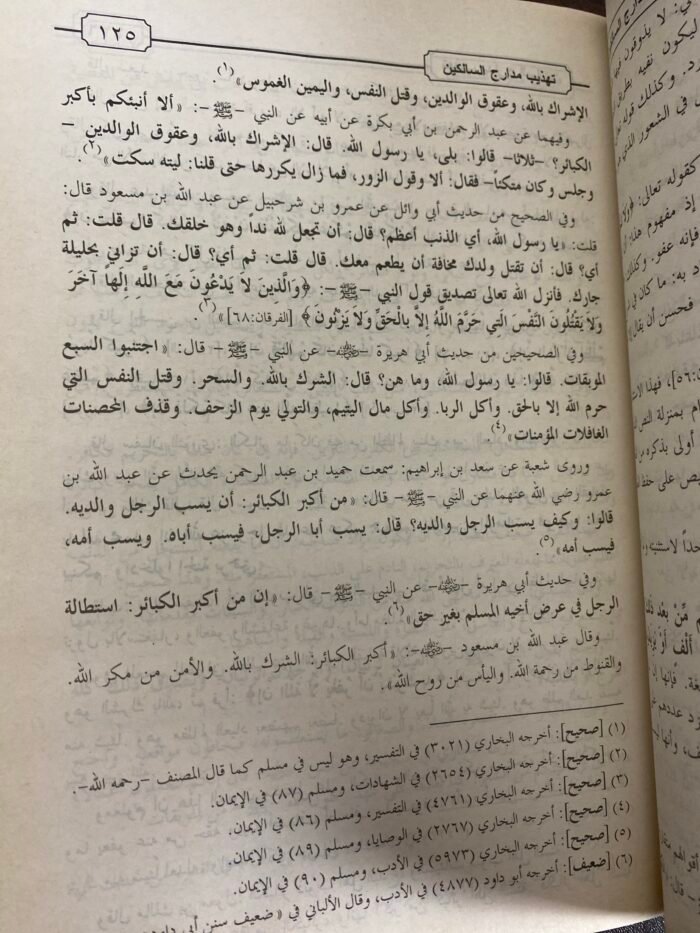 ١٢٥
تهذيب مدارج السالكين
الإشراك بالله، وعقوق الوالدين، وقتل النفس، واليمين الغموس»(١)
وفيهما عن عبد الرحمن بن أبي بكرة عن أبيه عن النبي –ﷺ–: «ألا أنبئكم بأكبر
الكبائر؟ –ثلاثا– قالوا: بلى، يا رسول الله. قال: الإشراك بالله، وعقوق الوالدين –
وجلس وكان متكئا– فقال: ألا وقول الزور، فما زال يكررها حتى قلنا: ليته سكت»(٢).
وفي الصحيح من حديث أبي وائل عن عمرو بن شرحبيل عن عبد الله بن مسعود قال:
قلت: «يا رسول الله، أي الذنب أعظم؟ قال: أن تجعل لله نداً وهو خلقك. قال قلت: ثم
أي؟ قال: أن تقتل ولدك مخافة أن يطعم معك. قال قلت: ثم أي؟ قال: أن تزاني بحليلة
جارك. فأنزل الله تعالى تصديق قول النبي –ﷺ–: ﴿وَالَّذِينَ لَا يَدْعُونَ مَعَ اللَّهِ إِلَهاً آخَرَ
وَلَا يَقْتُلُونَ النَّفْسَ الَّتِي حَرَّمَ اللَّهُ إِلَّا بِالْحَقِّ وَلَا يَزْنُونَ﴾ [الفرقان:٦٨]»(٣).
وفي الصحيحين من حديث أبي هريرة –رضي الله عنه– عن النبي –ﷺ– قال: «اجتنبوا السبع
الموبقات. قالوا: يا رسول الله، وما هن؟ قال: الشرك بالله. والسحر. وقتل النفس التي
حرم الله إلا بالحق. وأكل الربا. وأكل مال اليتيم، والتولي يوم الزحف. وقذف المحصنات
الغافلات المؤمنات»(٤).
وروى شعبة عن سعد بن إبراهيم: سمعت حميد بن عبد الرحمن يحدث عن عبد الله بن
عمرو رضي الله عنهما عن النبي –ﷺ– قال: «من أكبر الكبائر: أن يسب الرجل والديه.
قالوا: وكيف يسب الرجل والديه؟ قال: يسب أبا الرجل، فيسب أباه. ويسب أمه،
فيسب أمه»(٥).
وفي حديث أبي هريرة –رضي الله عنه– عن النبي –ﷺ– قال: «إن من أكبر الكبائر: استطالة
الرجل في عرض أخيه المسلم بغير حق»(٦).
وقال عبد الله بن مسعود –رضي الله عنه–: «أكبر الكبائر: الشرك بالله. والأمن من مكر الله.
والقنوط من رحمة الله. واليأس من روح الله».
(١) [صحيح]: أخرجه البخاري (٣٠٢١) في التفسير، وهو ليس في مسلم كما قال المصنف –رحمه الله–.
(٢) [صحيح]: أخرجه البخاري (٢٦٥٤) في الشهادات، ومسلم (٨٧) في الإيمان.
(٣) [صحيح]: أخرجه البخاري (٤٧٦١) في التفسير، ومسلم (٨٦) في الإيمان.
(٤) [صحيح]: أخرجه البخاري (٢٧٦٧) في الوصايا، ومسلم (٨٩) في الإيمان.
(٥) [صحيح]: أخرجه البخاري (٥٩٧٣) في الأدب، ومسلم (٩٠) في الإيمان.
(٦) [ضعيف]: أخرجه أبو داود (٤٨٧٧) في الأدب، وقال الألباني في «ضعيف سنن أبي